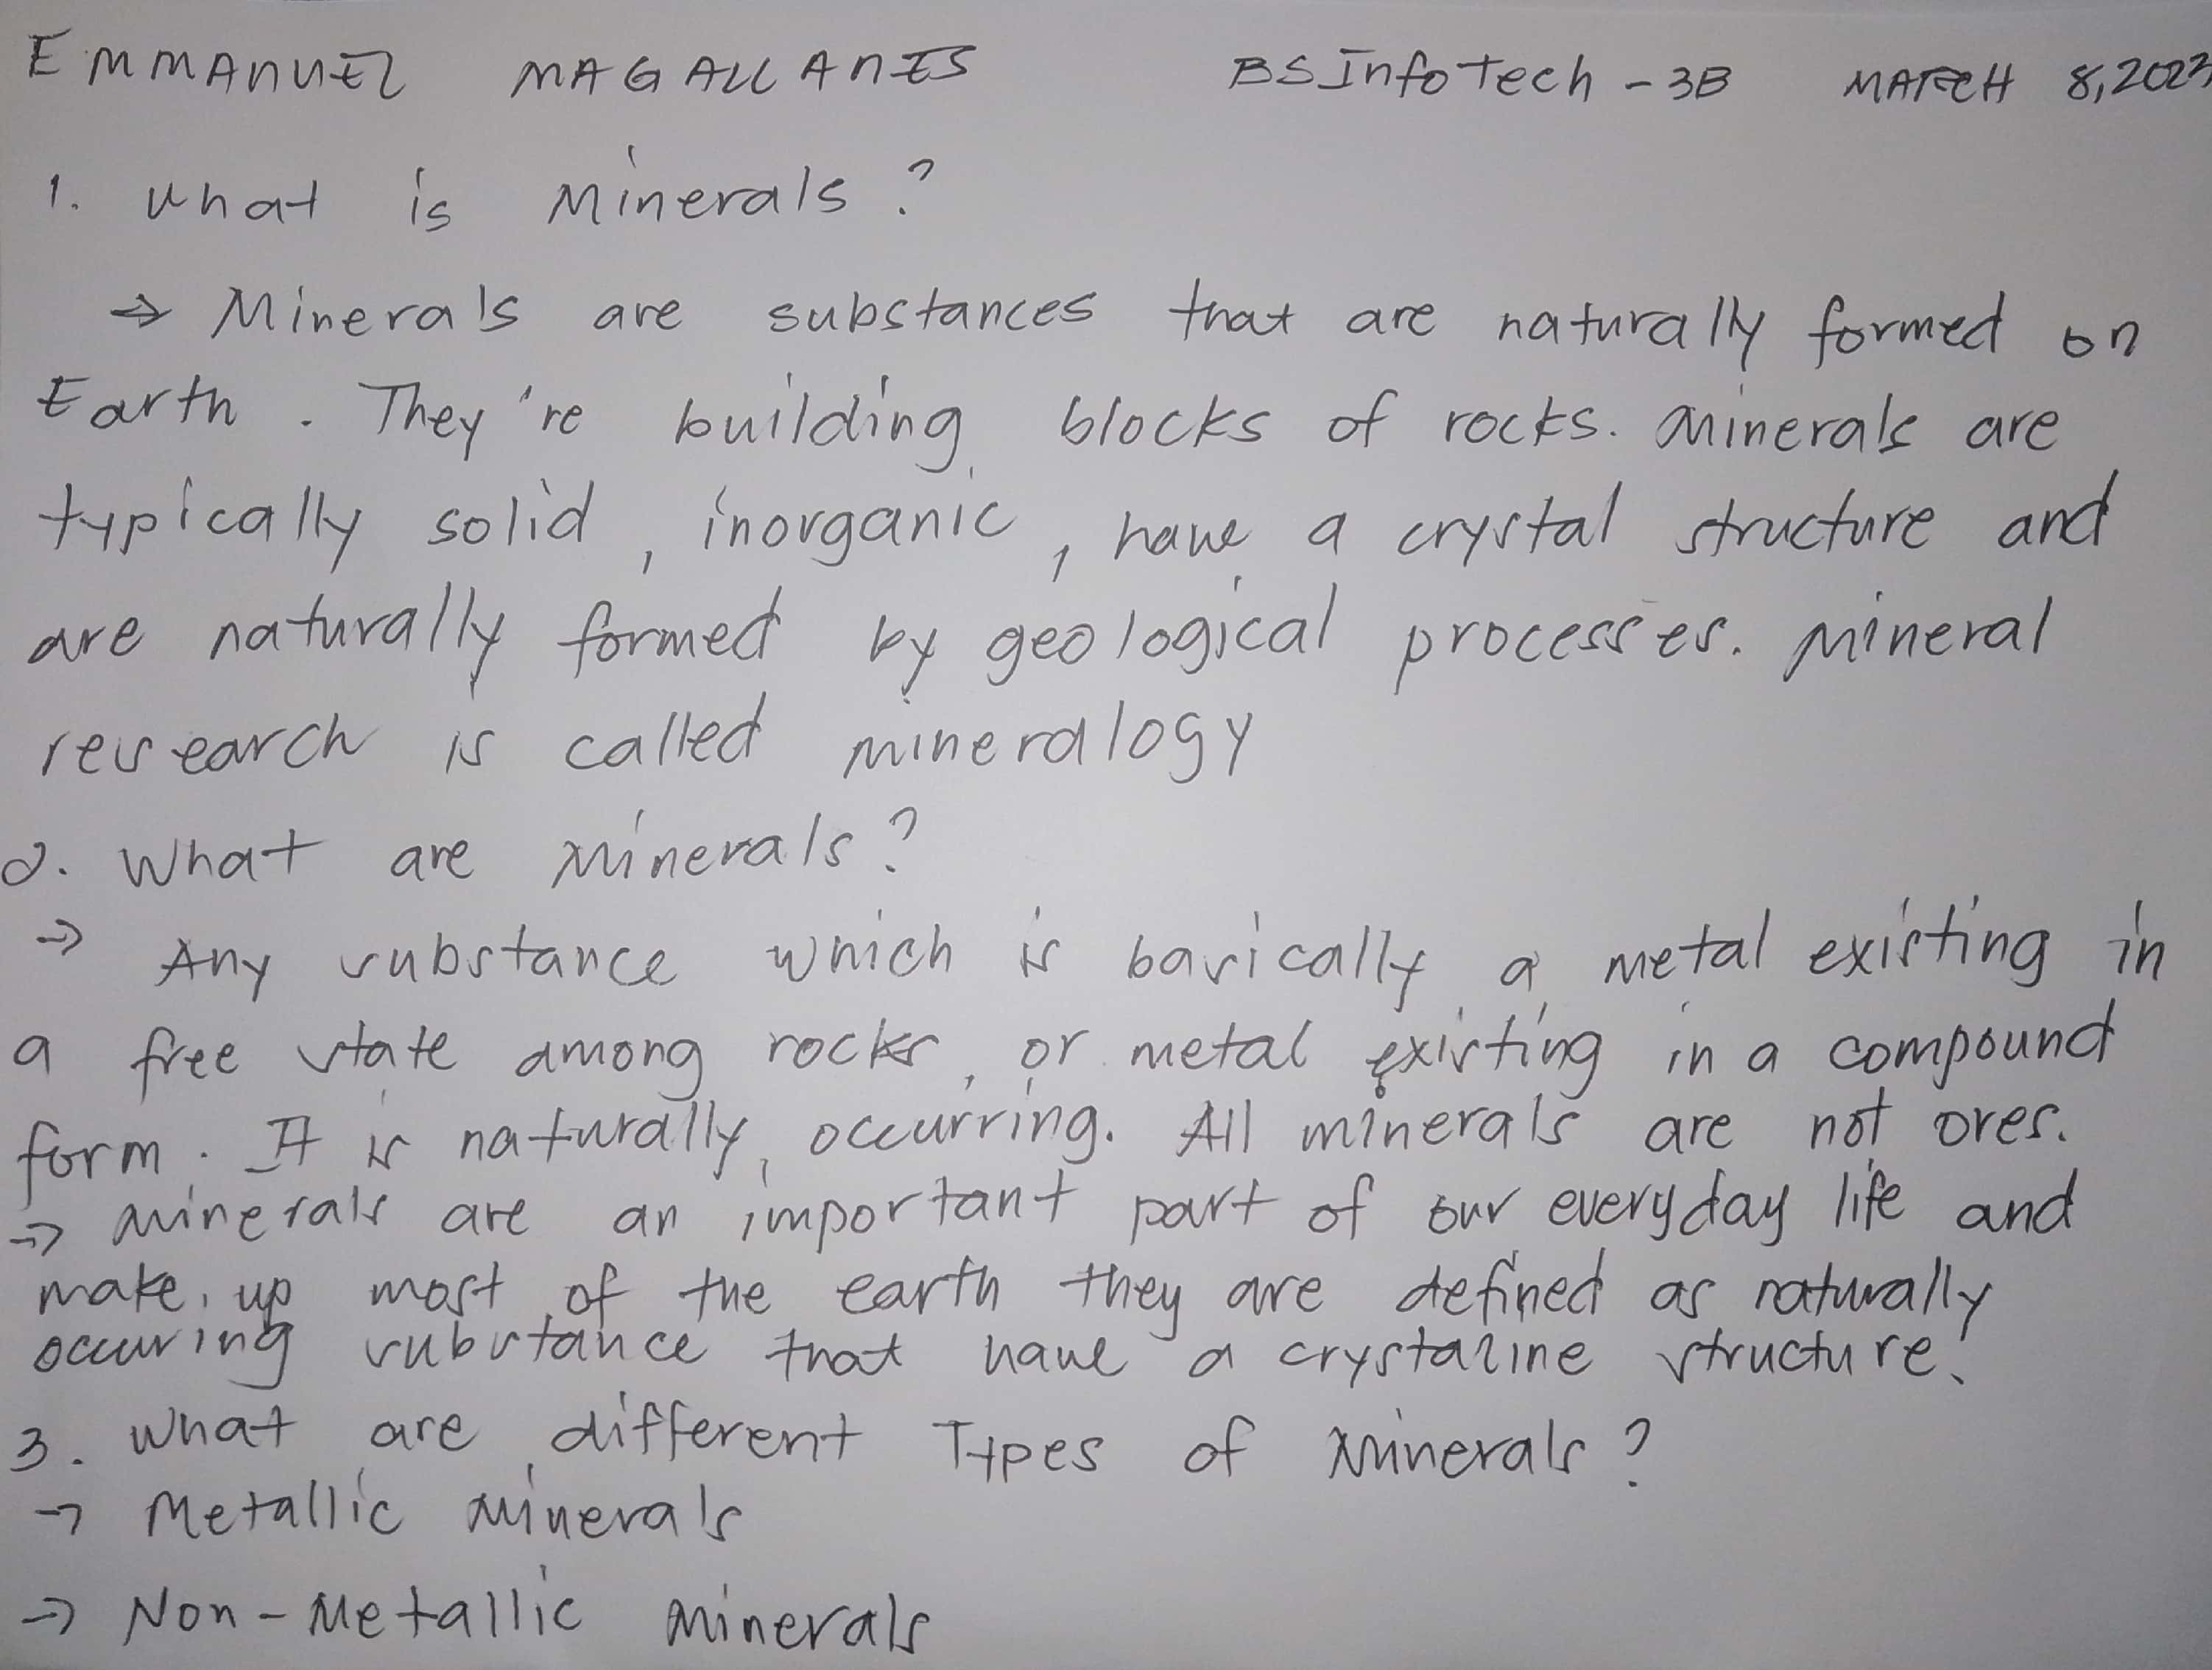 EMMANUEL MAGALLANES BSInfoTech - 3B MARCH 8, 2023
1. What is Minerals?
⇒ Minerals are substances that are naturally formed on
Earth. They're building blocks of rocks. Minerals are
typically solid, inorganic, have a crystal structure and
are naturally formed by geological processes. Mineral
research is called mineralogy
2. What are Minerals?
⇒ Any substance which is basically a metal existing in
a free state among rocks, or metal existing in a compound
form. It is naturally occurring. All minerals are not ores.
⇒ Minerals are an important part of our everyday life and
make up most of the earth they are defined as naturally
occuring substance that have a crystaline structure.
3. What are different Types of Minerals?
→ Metallic Minerals
→ Non-Metallic Minerals